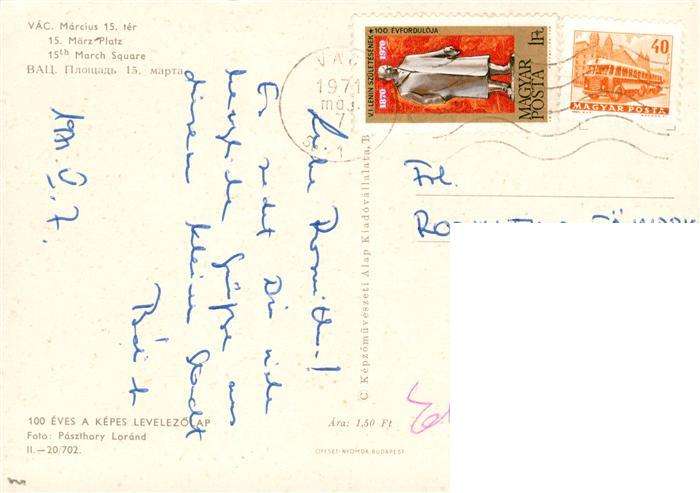 VÁC. Március 15. tér
15. März Platz
15th March Square
ВАЦ. Площадь 15. марта
V. I. LENIN SZÜLETÉSÉNEK ★ 100. ÉVFORDULÓJA
1870 1970
1Ft
MAGYAR POSTA
40
MAGYAR POSTA
VÁC
1971
máj.
7
Frl.
Liebe Roswitha!
Es sendet Dir viele
herzliche Grüße aus
diesem kleinen Stadt
1971. V. 7.
C Képzőművészeti Alap Kiadóvállalata, B
100 ÉVES A KÉPES LEVELEZŐLAP
Foto: Pászthory Loránd
II.—20/702.
Ára: 1,50 Ft
OFFSET-NYOMDA BUDAPEST